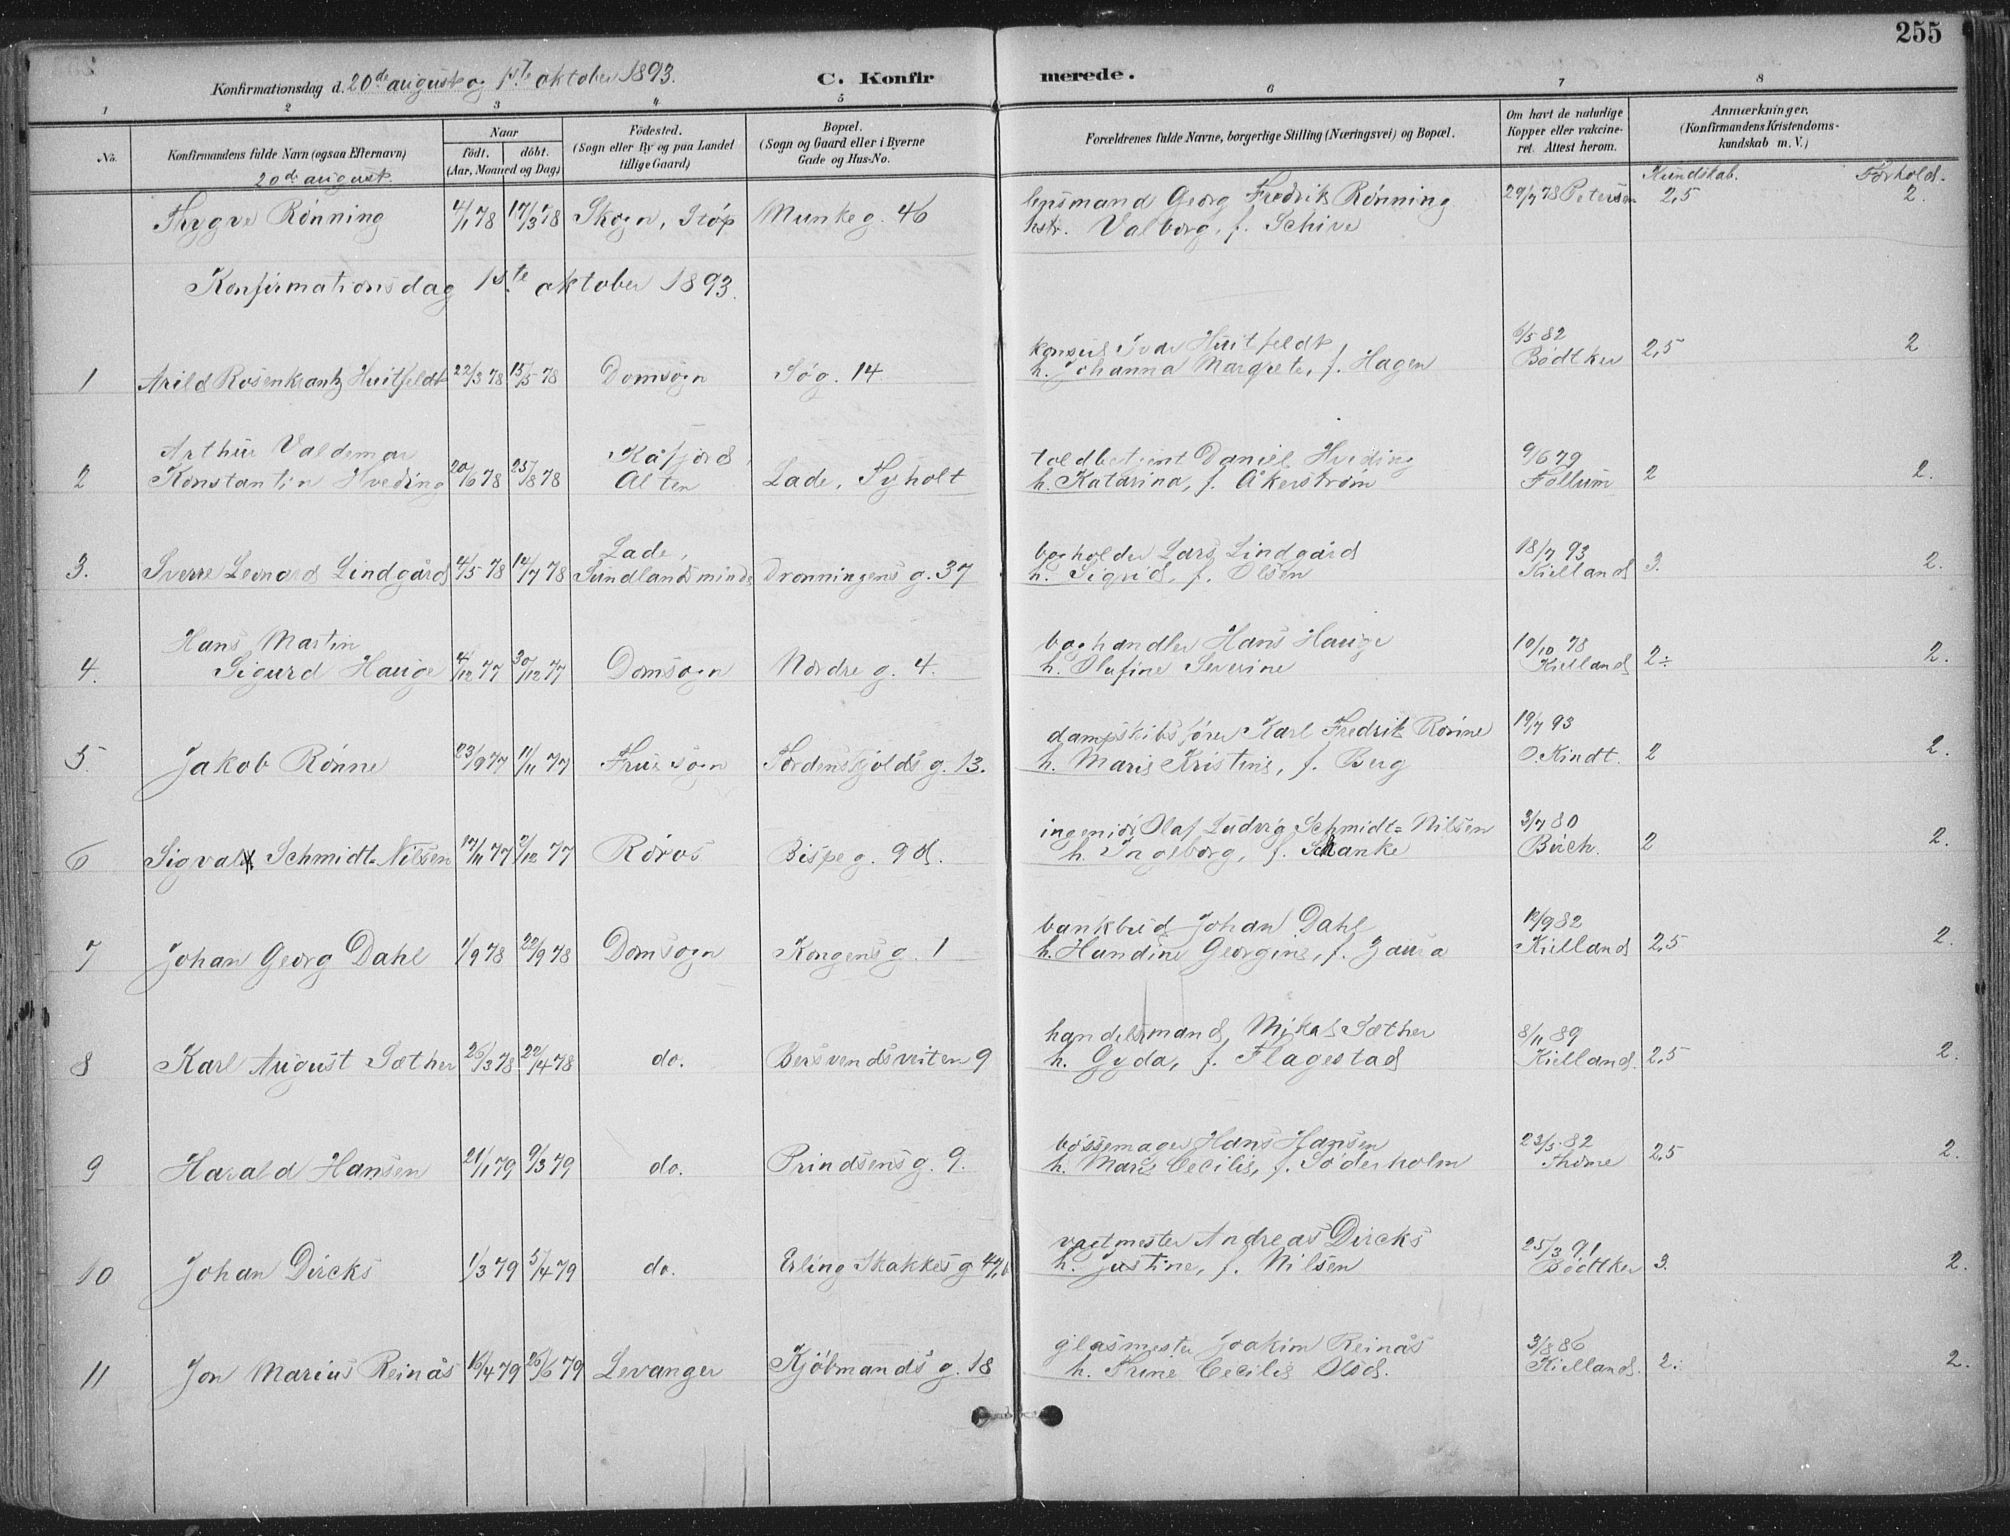 255
Konfirmationsdag d. 20de august og 1ste oktober 1893.
C. Konfirmerede.
1 2 3 4 5 6 7 8
No.
Konfirmandens fulde Navn (ogsaa Efternavn)
Naar
födt. döbt.
(Aar, Maaned og Dag)
Födested.
(Sogn eller By og paa Landet
tillige Gaard)
Bopæl.
(Sogn og Gaard eller i Byerne
Gade og Hus-No.
Forældrenes fulde Navne, borgerlige Stilling (Næringsvei) og Bopæl.
Om havt de naturlige
Kopper eller vakcine-
ret. Attest herom.
Anmærkninger.
(Konfirmandens Kristendoms-
kundskab m. V.)
20de august.
Kundskab. Forhold.
Thygve Rönning 4/1 78 17/3 78 Skogn, Støp Munkeg. 46 lensmand Georg Fredrik Rønning 29/7 78 Petersen 2,5 2.
hstr. Valborg, f. Schive
Konfirmationsdag 1ste oktober 1893.
konsul Ivar Huitfeldt 6/5 82
1 Arild Rosenkrantz Huitfeldt 22/3 78 13/5 78 Domsogn Søg. 14 h. Johanna Margrete, f. Hagen Bödtker 2,5 2
Arthur Valdemar Kåfjord, toldbetjent Daniel Hveding 9/6 79
2 Konstantin Hveding 20/6 78 25/8 78 Alten Lade, Fyholt h. Katarina, f. Åkerström Follum 2 2.
Lade, bogholder Lars Lindgård 18/7 93
3. Sverre Leonard Lindgård 4/5 78 14/7 78 Sundlandsminde Dronningens g. 37 h. Sigrid, f. Olsen Kielland 3. 2.
Hans Martin boghandler Hans Hauge 10/10 78
4. Sigurd Hauge 4/12 77 30/12 77 Domsogn Nordre g. 4. h. Olufine Severine Kielland 2÷ 2.
dampskibsfører Karl Fredrik Rönne 19/7 93
5 Jakob Rönne 23/9 77 11/11 77 Frue sogn Tordenskjolds g. 13. h. Marie Kristine, f. Berg O. Kindt. 2 2.
ingeniör Olaf Ludvig Schmidt=Nilsen 3/7 80
6 Sigval Schmidt=Nilsen 17/11 77 9/12 77 Röros Bispe g. 9 d. h. Ingeborg, f. Schanke Buch. 2 2.
bankbud Johan Dahl 12/9 82
7 Johan Georg Dahl 1/9 78 22/9 78 Domsogn Kongens g. 1 h. Hundine Georgine, f. Jaura Kielland 2,5 2.
handelsmand Mikal Sæther 8/11 89
8 Karl August Sæther 26/3 78 22/4 78 do. Bersvendsveiten 9 h. Gyda, f. Flagestad Kielland. 2,5 2.
bössemager Hans Hansen 23/5 82
9 Harald Hansen 21/1 79 9/3 79 do. Prindsens g. 9. h. Marie Cecilie, f. Söderholm Thöme 2,5 2.
vagtmester Andreas Dircks 25/3 91
10 Johan Dircks 1/3 79 5/4 79 do. Erling Skakkes g. 47, b h. Justine, f. Nilsen Bödtker 3. 2.
glasmester Joakim Reinås 3/8 86
11 Jon Marius Reinås 16/4 79 26/6 79 Levanger Kjöbmands g. 18 h. Trine Cecilie Kielland. 2: 2.